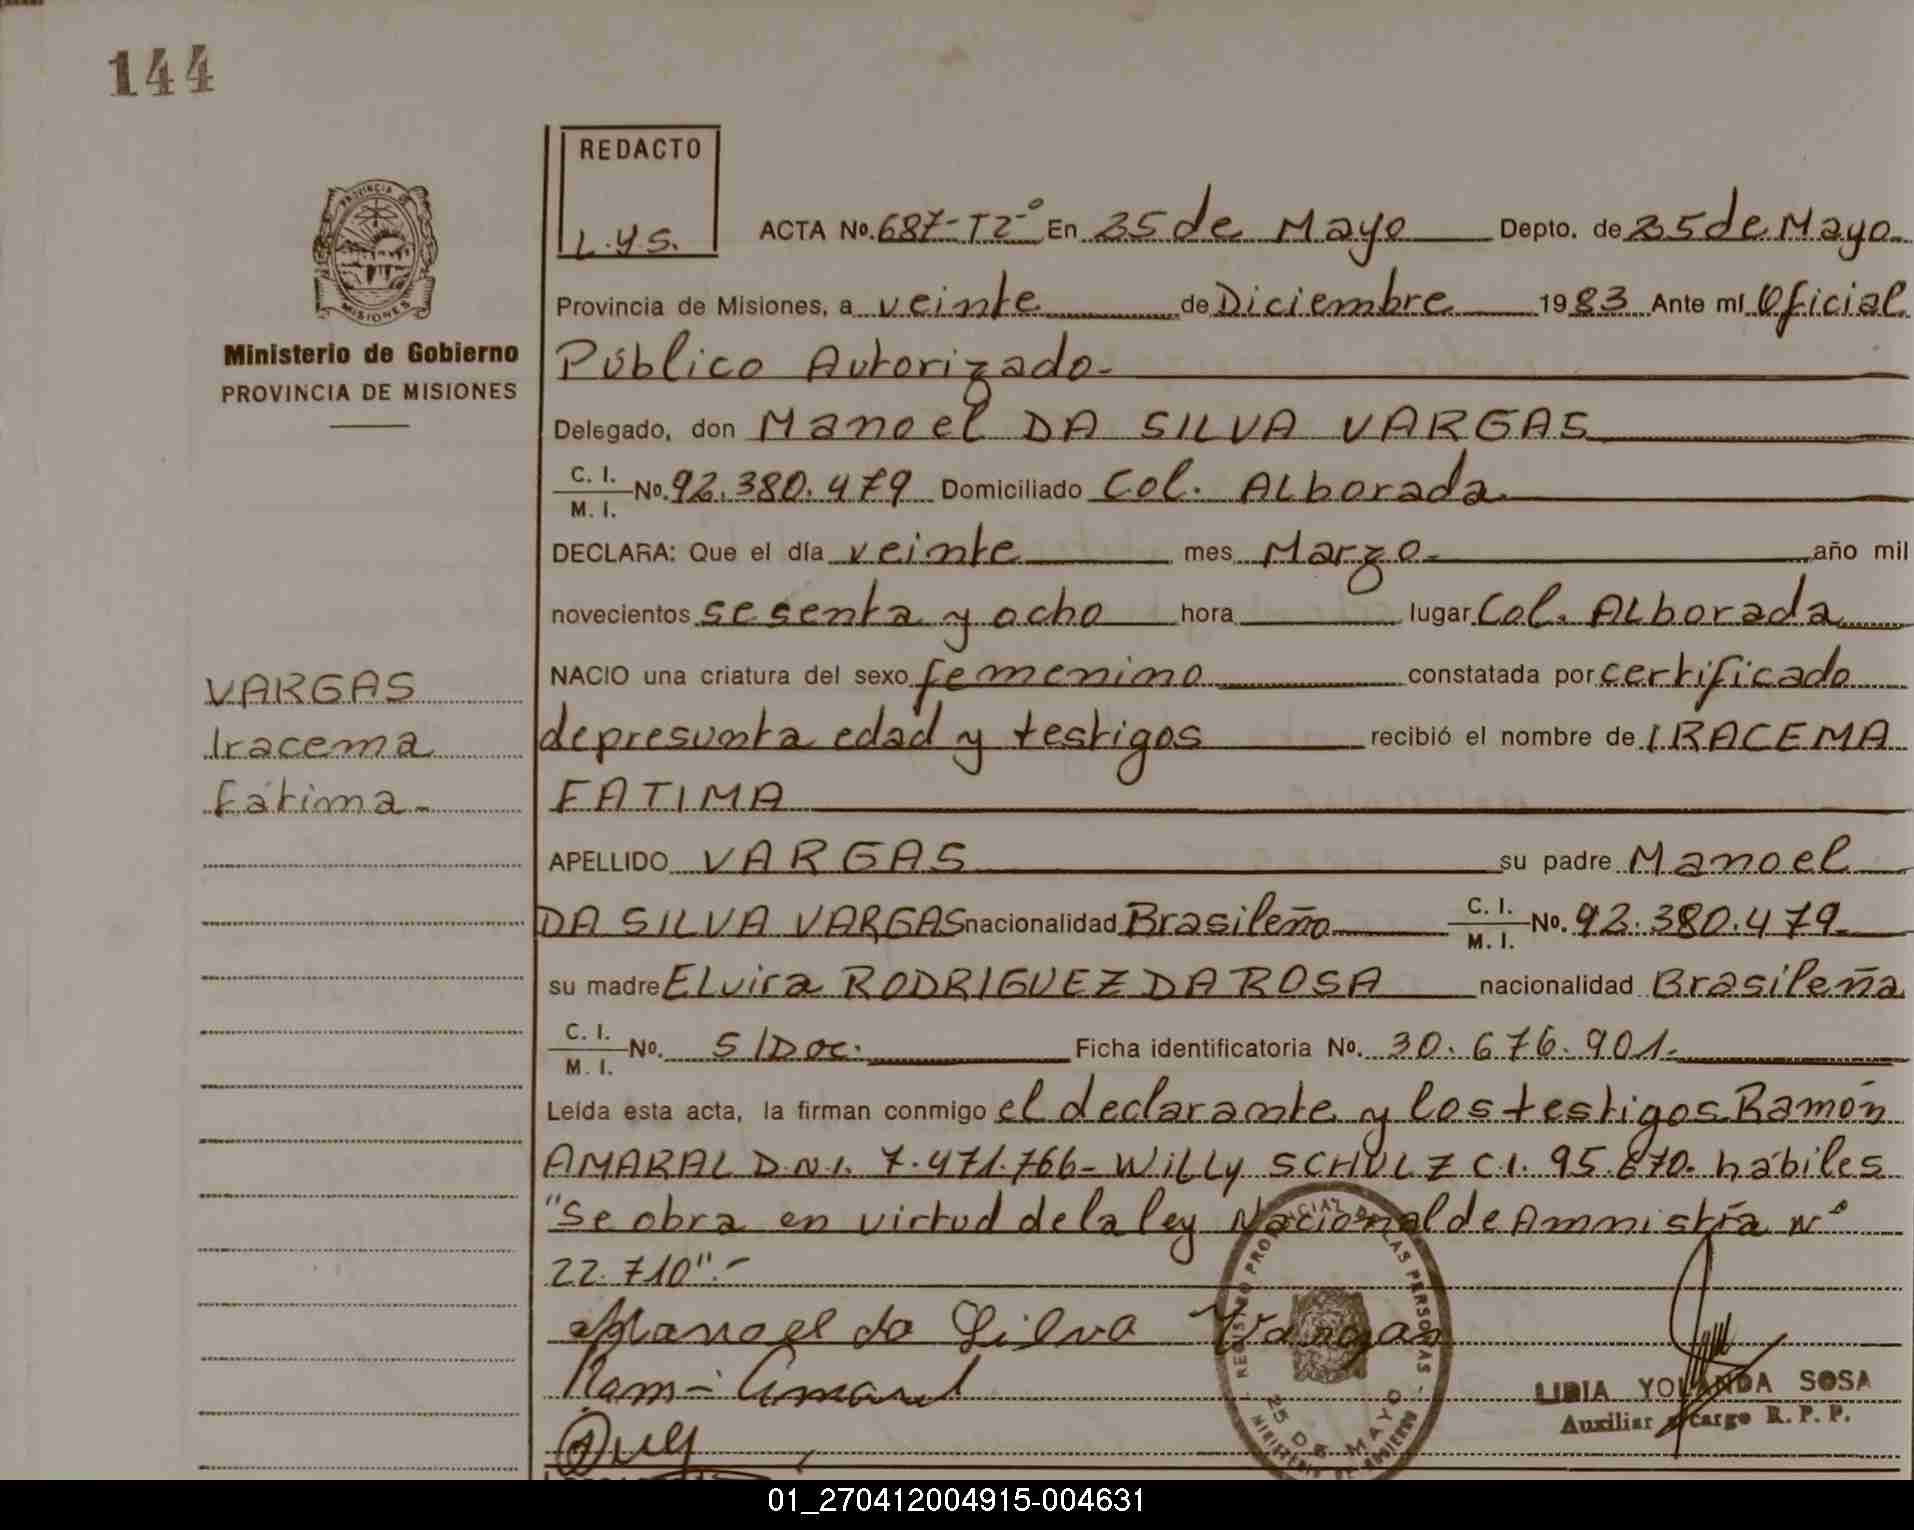 144
REDACTO
L.Y.S.
ACTA No. 687-T2-º En 25 de Mayo Depto. de 25 de Mayo
PROVINCIA
MISIONES
Provincia de Misiones, a veinte de Diciembre 1983 Ante mí Oficial
Ministerio de Gobierno
PROVINCIA DE MISIONES
Público Autorizado-
Delegado, don Manoel DA SILVA VARGAS
C. I.
M. I. No. 92.380.479 Domiciliado Col. ALborada
DECLARA: Que el día veinte mes Marzo- año mil
novecientos sesenta y ocho hora lugar Col. ALborada
NACIO una criatura del sexo femenino constatada por certificado
VARGAS
Iracema
Fátima-
depresunta edad y testigos recibió el nombre de IRACEMA
FATIMA
APELLIDO VARGAS su padre Manoel
DA SILVA VARGAS nacionalidad Brasileño C. I. M. I. No. 92.380.479-
su madre ELvira RODRIGUEZ DA ROSA nacionalidad Brasileña
C. I.
M. I. No. S/Doc. Ficha identificatoria No. 30.676.901.-
Leída esta acta, la firman conmigo el declarante y los testigos Ramón
AMARAL D.N.I. 7.471.766- WiLLy SCHULZ C.I. 95.670. hábiles
"Se obra en virtud de la ley Nacional de Amnistía Nº
22.710".-
Manoel da Silva Vargas
Ramón Amaral
REGISTRO PROVINCIAL DE LAS PERSONAS
25 DE MAYO
MINISTERIO DE GOBIERNO
LIDIA YOLANDA SOSA
Auxiliar a cargo R. P. P.
01_270412004915-004631